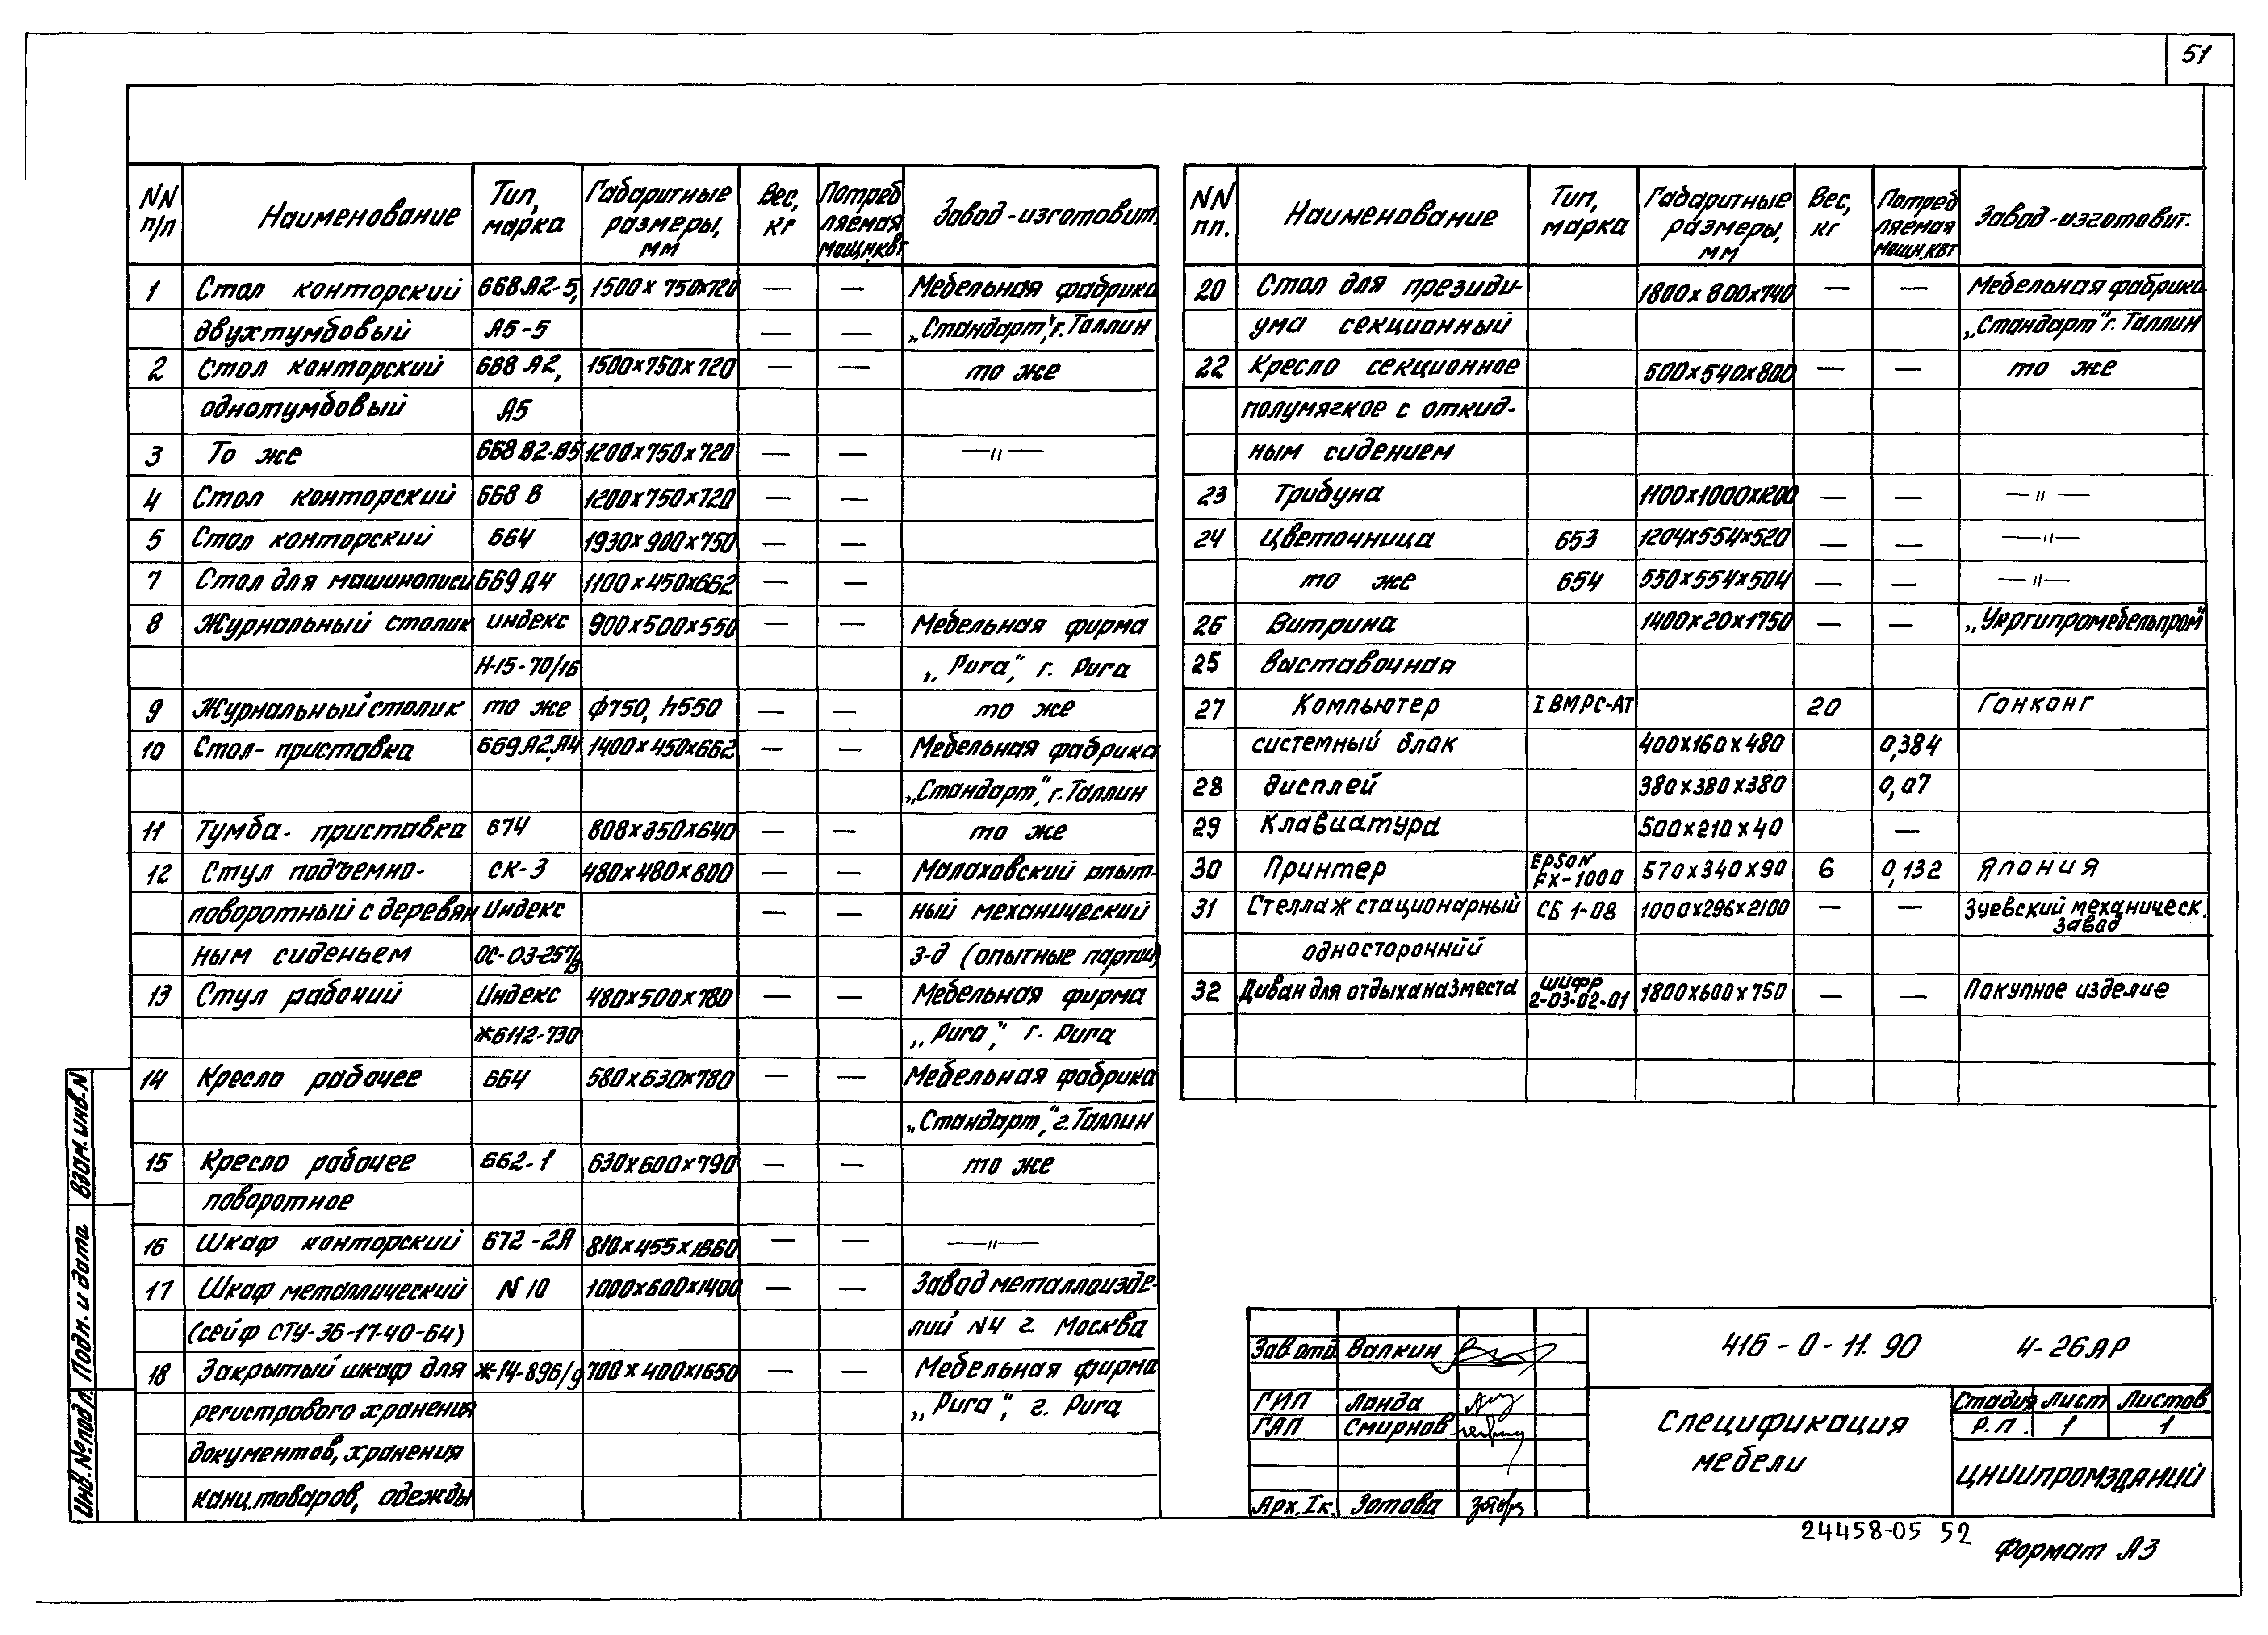 51
NN п/п Наименование Тип, марка Габаритные размеры, мм Вес, кг Потреб ляемая мощн.квт Завод-изготовит.
1 Стол конторский 668А2-5, 1500х750х720 — — Мебельная фабрика
двухтумбовый А5-5 — — „Стандарт", г. Таллин
2 Стол конторский 668 А2, 1500х750х720 — — то же
однотумбовый А5
3 То же 668 В2-В5 1200х750х720 — — —"—
4 Стол конторский 668 В 1200х750х720 — —
5 Стол конторский 664 1930х900х750 — —
7 Стол для машинописи 669 Д4 1100х450х662 — —
8 Журнальный столик индекс 900х500х550 — — Мебельная фирма
Н-15-70/16 „Рига", г. Рига
9 Журнальный столик то же ф750, h550 — — то же
10 Стол-приставка 669А2,А4 1400х450х662 — — Мебельная фабрика
„Стандарт", г. Таллин
11 Тумба-приставка 674 808х350х640 — — то же
12 Стул подъемно- СК-3 480х480х800 — — Малаховский опыт-
поворотный с деревян Индекс — — ный механический
ным сиденьем ОС-03-257/В з-д (опытные партии)
13 Стул рабочий Индекс 480х500х780 — — Мебельная фирма
Ж6112-730 „Рига", г. Рига
14 Кресло рабочее 664 580х630х780 — — Мебельная фабрика
„Стандарт", г. Таллин
15 Кресло рабочее 662-1 630х600х790 — — то же
поворотное
16 Шкаф конторский 672-2А 810х455х1660 — — —"—
17 Шкаф металлический N 10 1000х600х1400 — — Завод металлоизде-
(сейф СТУ-36-17-40-64) лий N4 г Москва
18 Закрытый шкаф для Ж-14-896/9 700х400х1650 — — Мебельная фирма
регистрового хранения „Рига", г. Рига
документов, хранения
канц.товаров, одежды
NN пп. Наименование Тип, марка Габаритные размеры, мм Вес, кг Потреб ляемая мощн.квт Завод-изготовит.
20 Стол для президи- 1800х800х740 — — Мебельная фабрика
ума секционный „Стандарт" г. Таллин
22 Кресло секционное 500х540х800 — — то же
полумягкое с откид-
ным сидением
23 Трибуна 1100х1000х1200 — — —"—
24 Цветочница 653 1204х554х520 — — —"—
то же 654 550х554х504 — — —"—
26 Витрина 1400х20х1750 — — „Укргипромебельпром"
25 выставочная
27 Компьютер IBMPC-AT 20 Гонконг
системный блок 400х160х480 0,384
28 дисплей 380х380х380 0,07
29 Клавиатура 500х210х40 —
30 Принтер EPSON FX-1000 570х340х90 6 0,132 Япония
31 Стеллаж стационарный СБ 1-08 1000х296х2100 — — Зуевский механическ. завод
односторонний
32 Диван для отдыха на 3 места шифр 2-03-02-01 1800х600х750 — — Покупное изделие
Взам.инв.N
Подп. и дата
Инв.№подл.
Зав.отд. Валкин
ГИП Ланда
ГАП Смирнов
Арх.Iк. Зотова
416-0-11.90 4-26АР
Спецификация
мебели
Стадия Лист Листов
Р.П. 1 1
ЦНИИПРОМЗДАНИЙ
24458-05 52
Формат А3